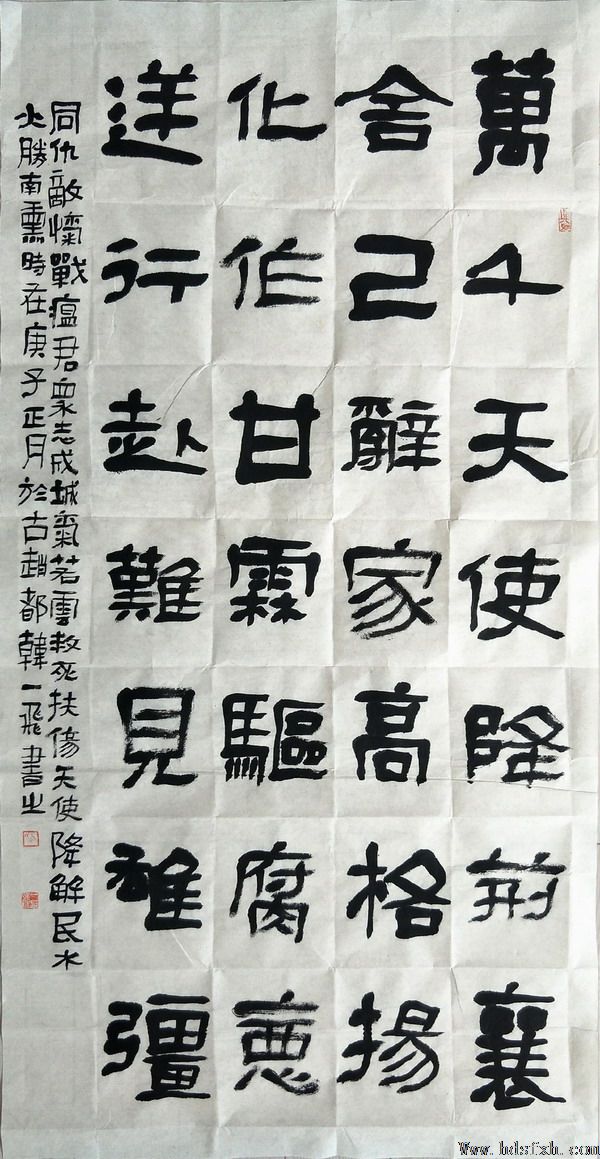 萬千天使降荊襄
舍己辭家高格揚
化作甘霖驅腐惡
逆行赴難見雄彊
同仇敵愾戰瘟君衆志成城氣若雲救死扶傷天使降解民水
火勝南薰時在庚子正月於古趙都韓一飛書之
Www.hdsfxh.com